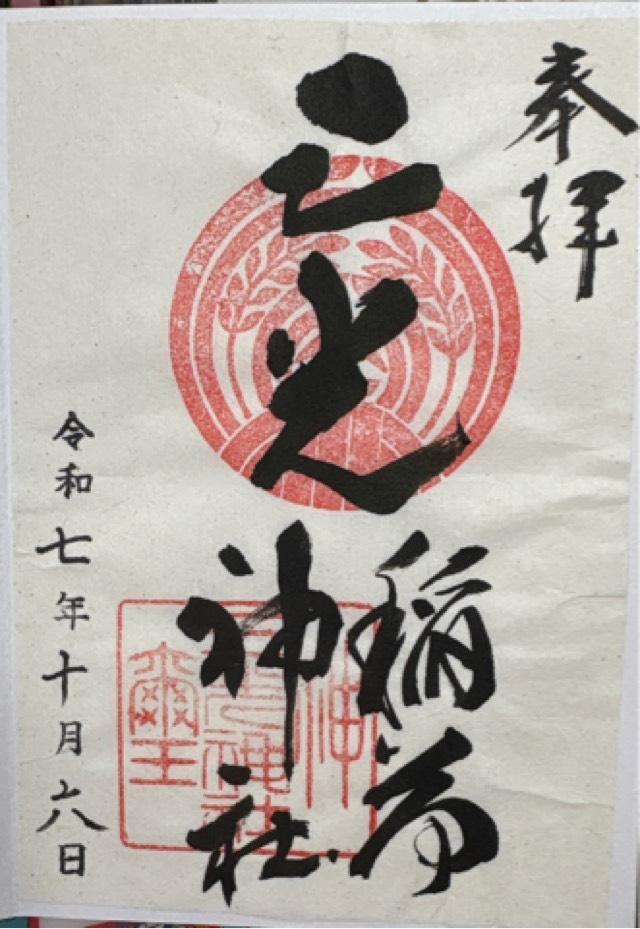 奉拝
三光
稲荷
神社
令和七年十月六日